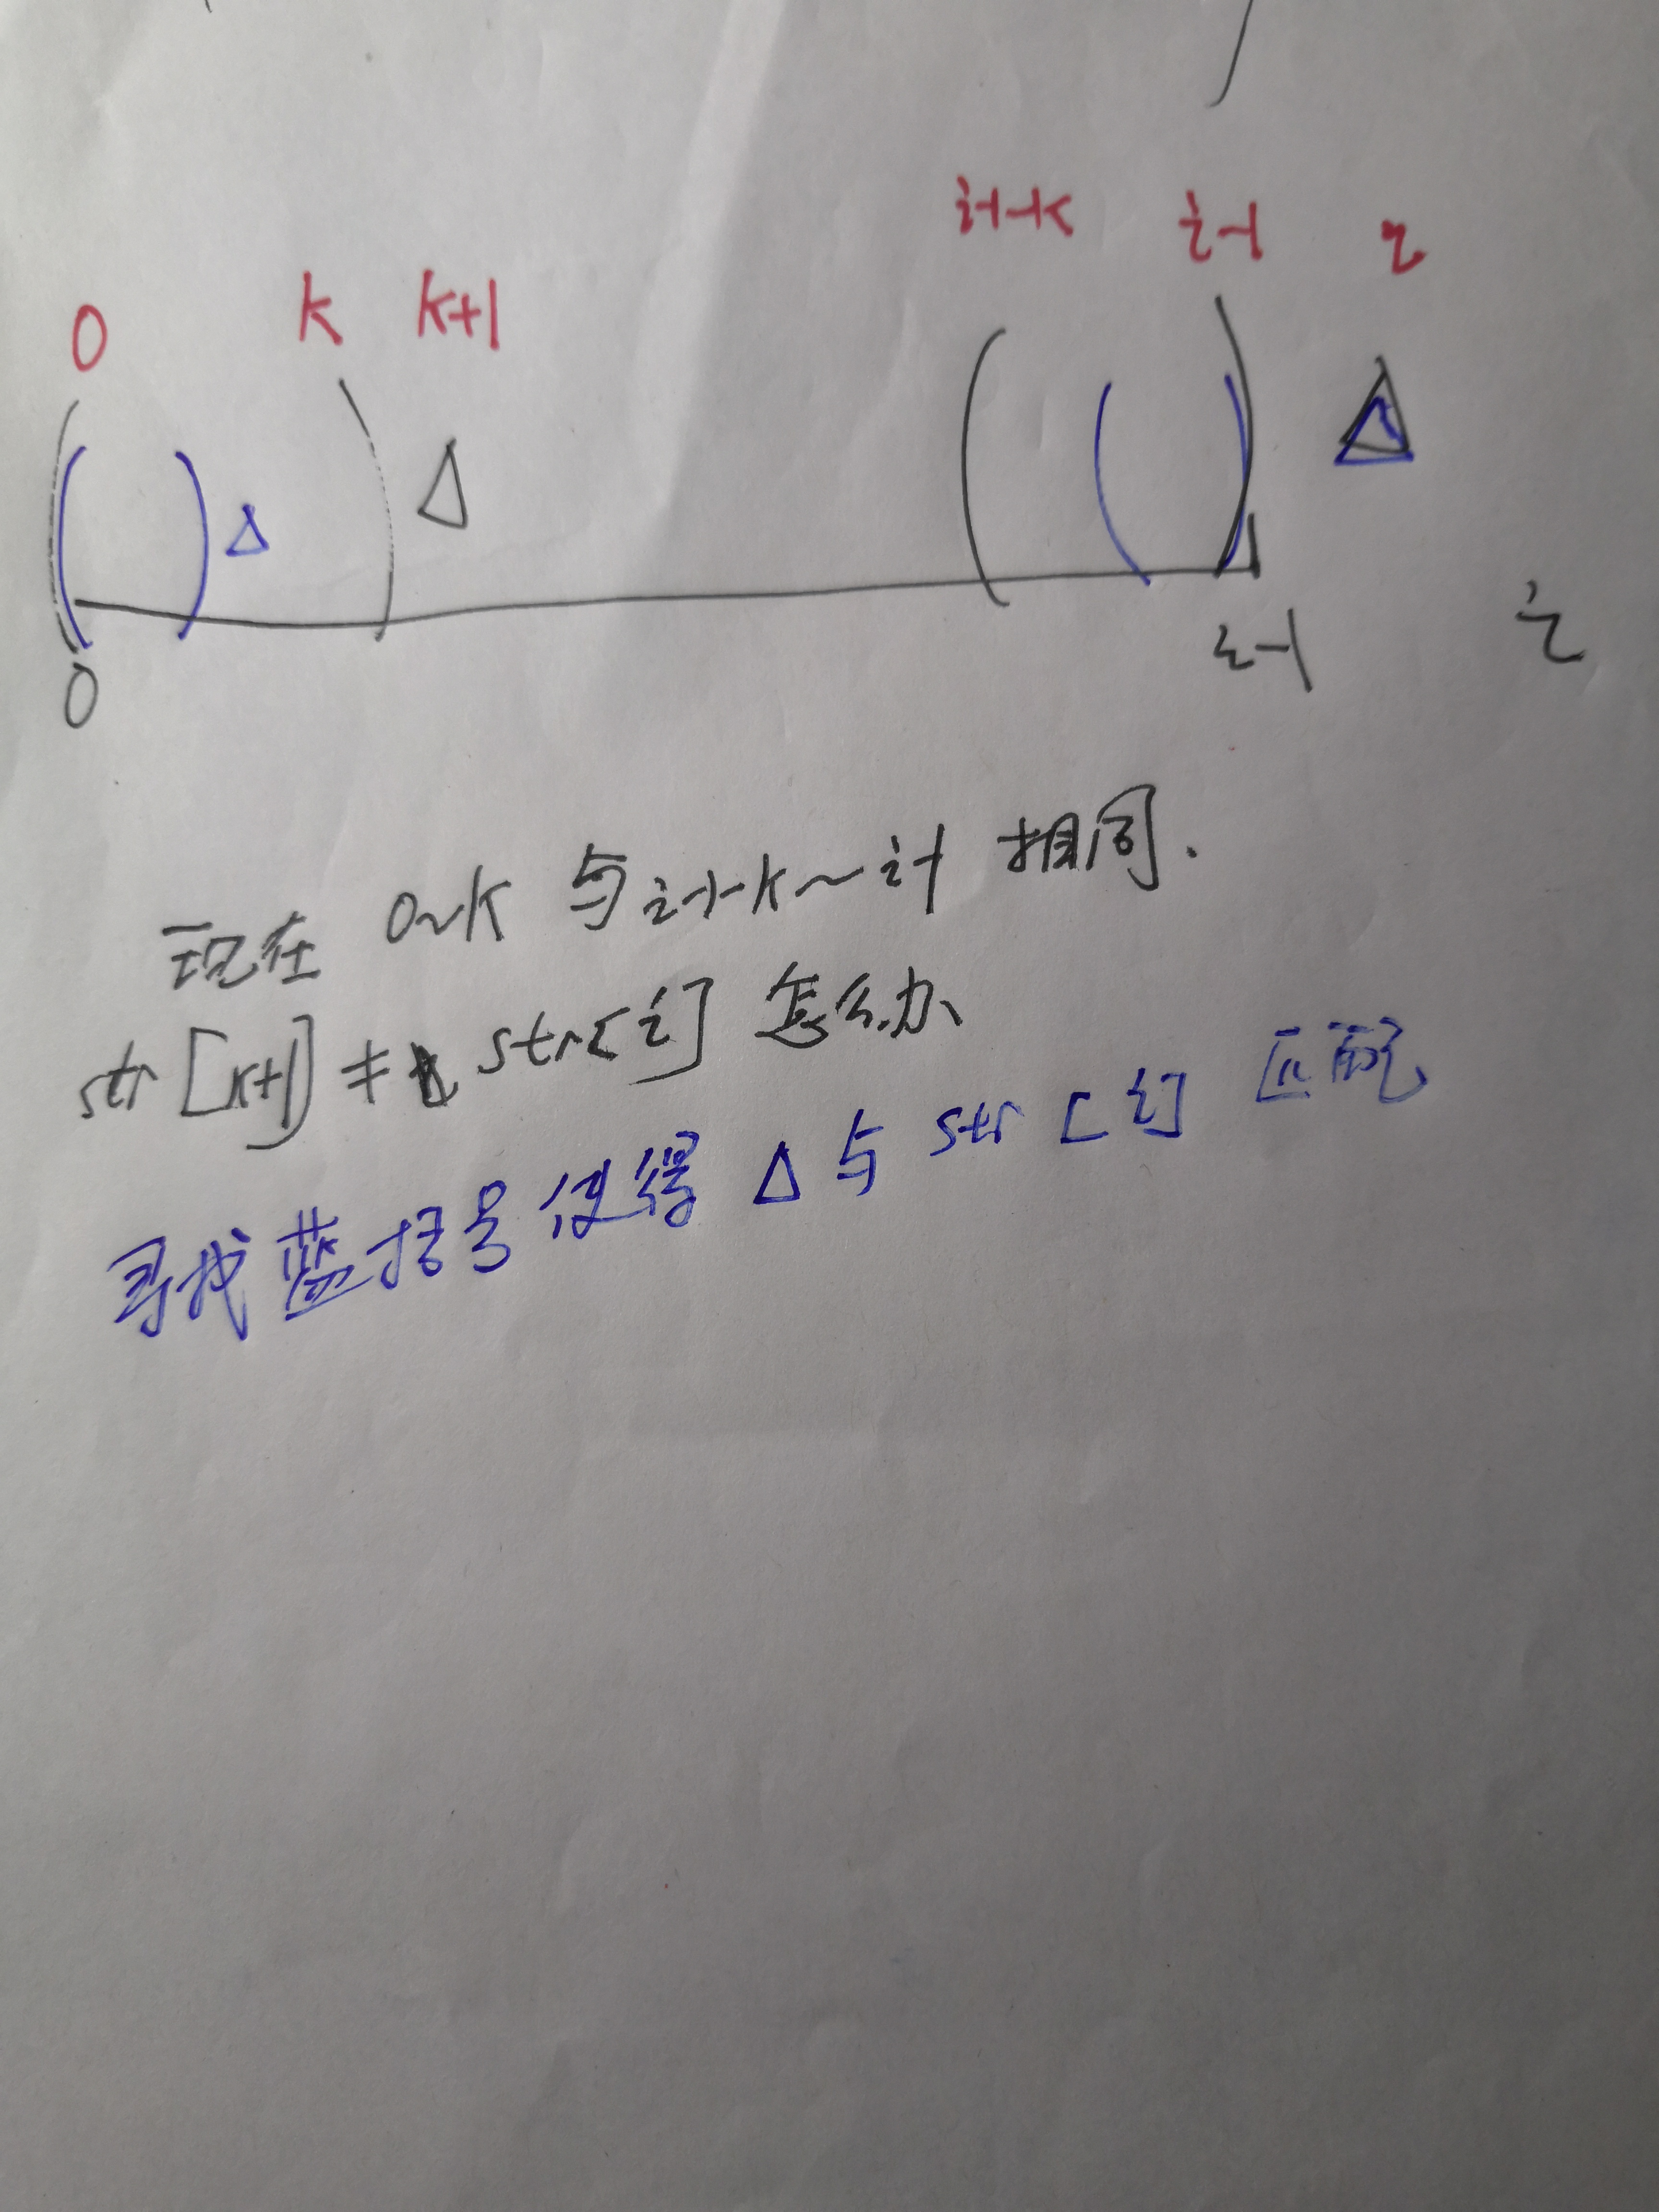 i-1-k i-1 i
0 k k+1
0 i-1 i
现在 0~k 与 i-1-k~i-1 相同.
str[k+1] ≠ str[i] 怎么办
寻找蓝括号使得 Δ与 str[i] 匹配